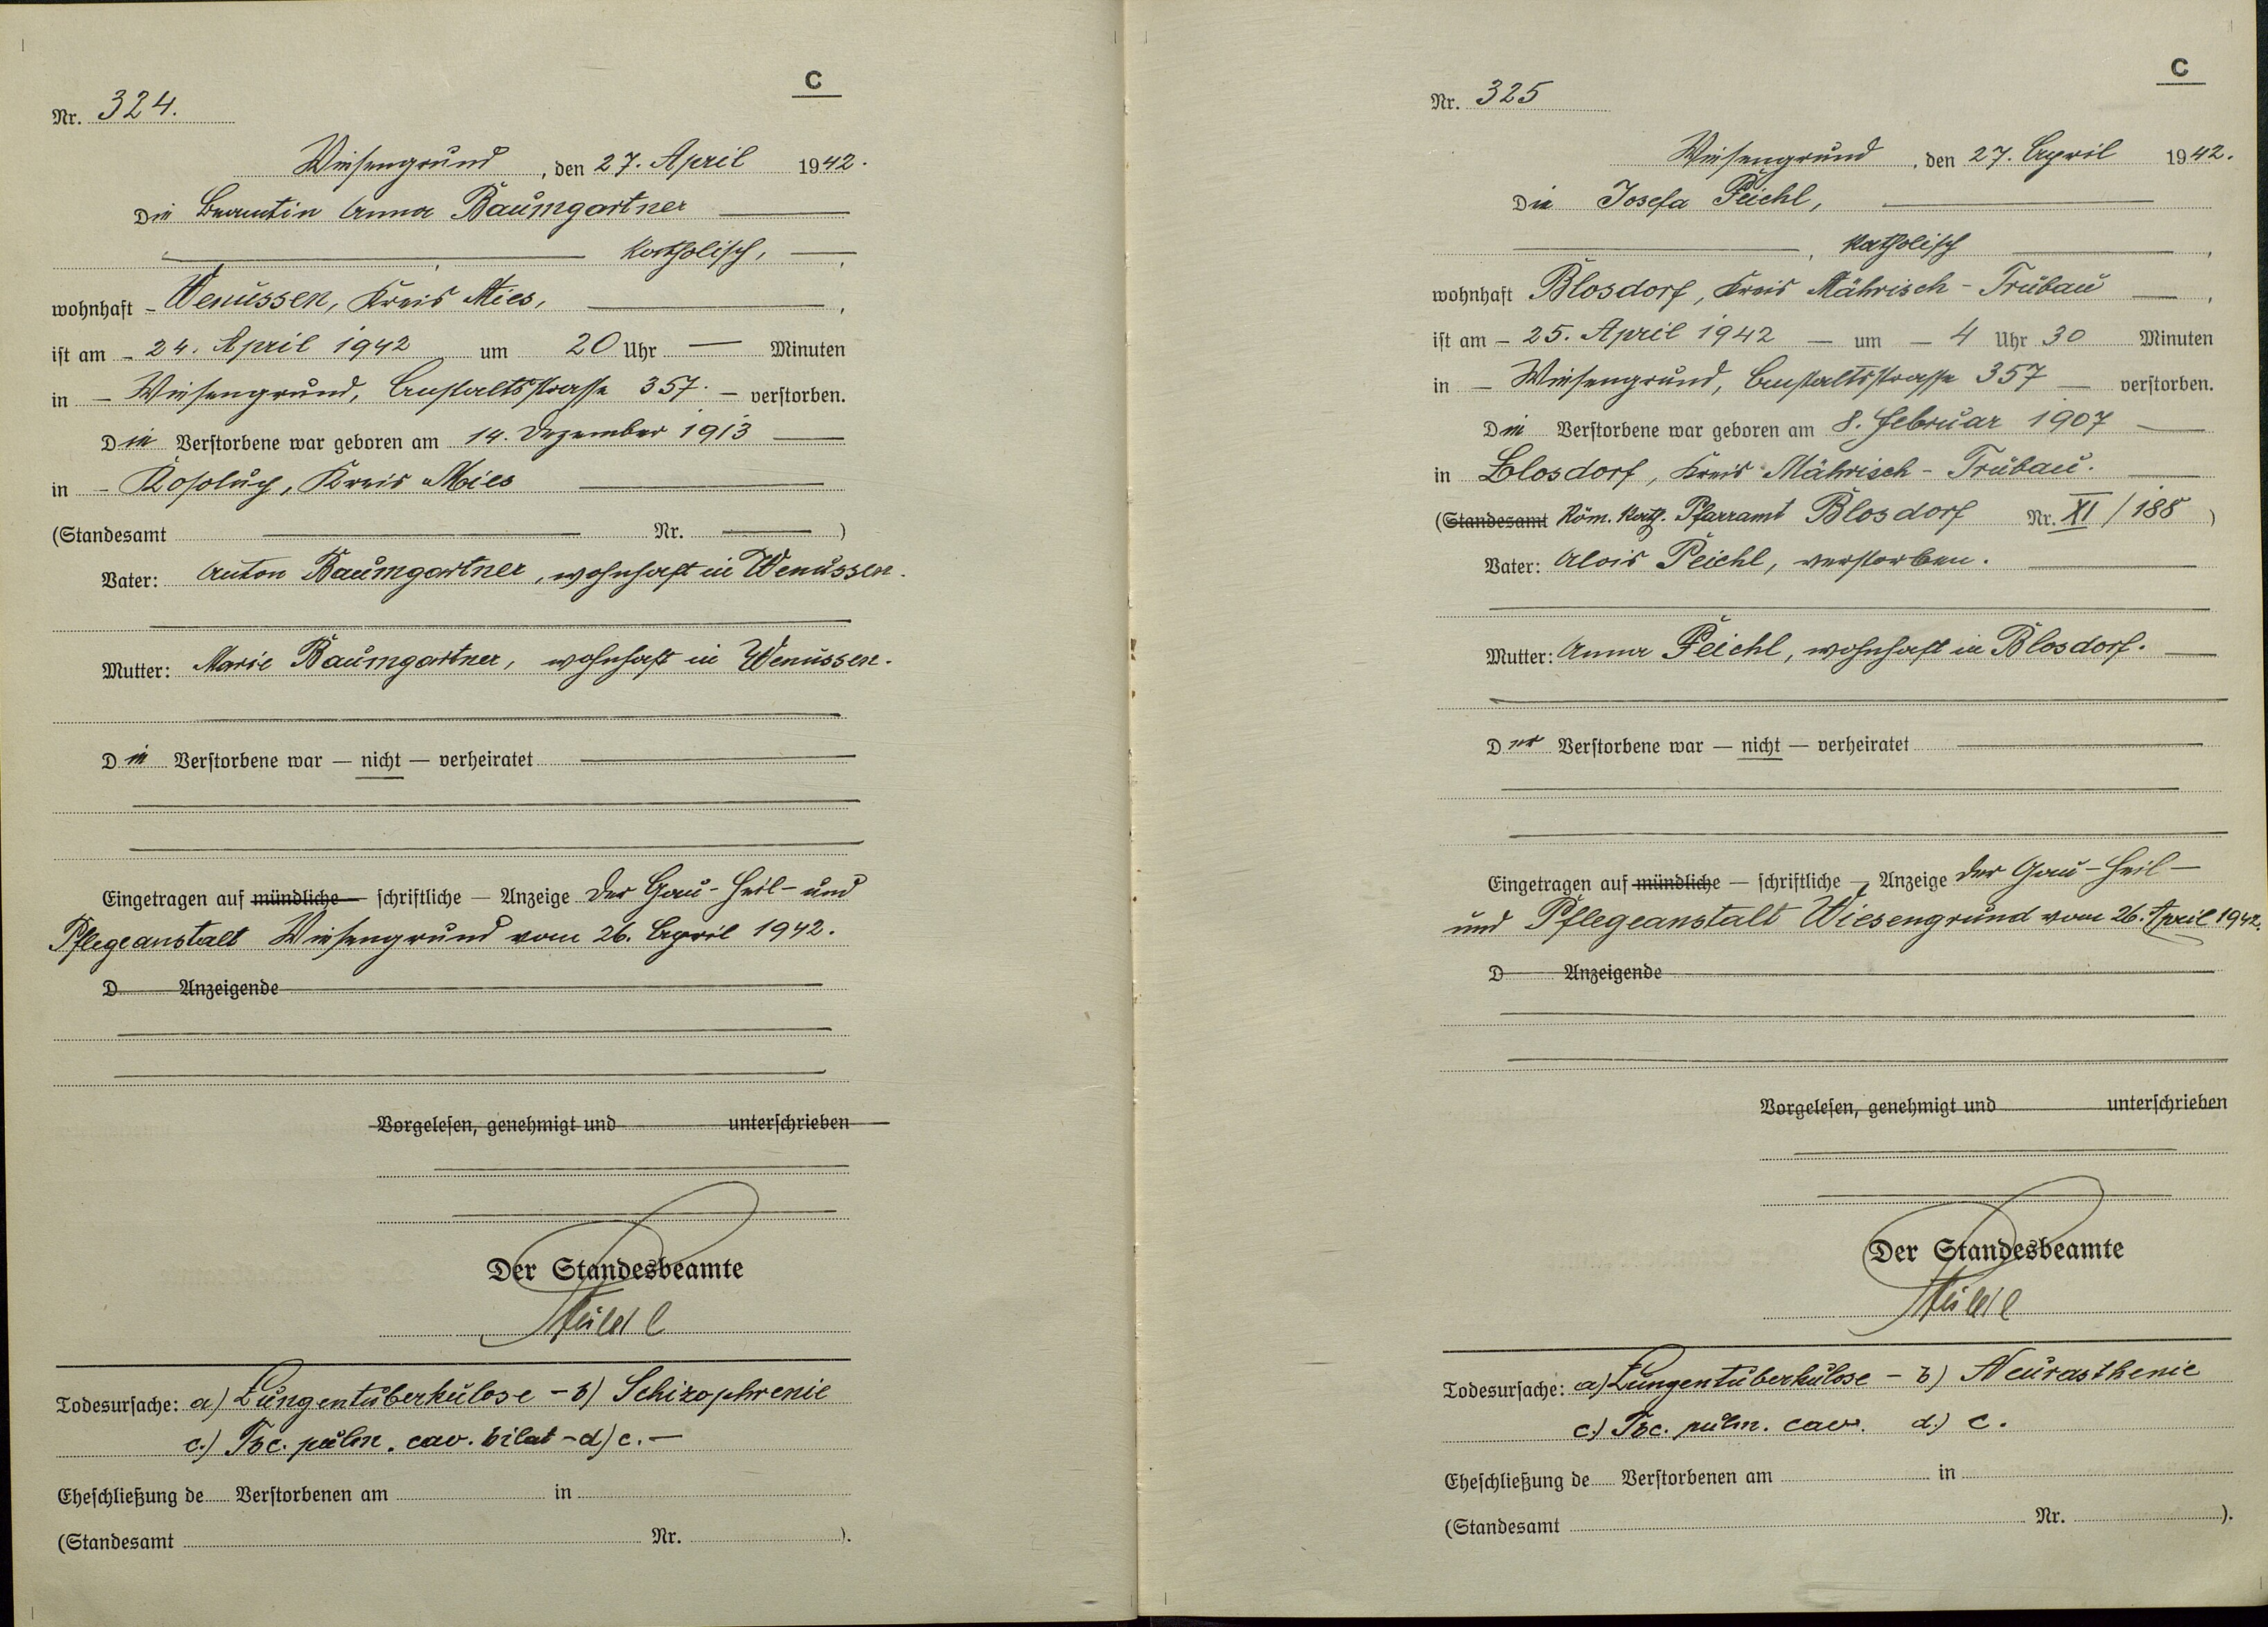 C
Nr. 324.
Wiesengrund, den 27. April 1942.
Die Beamtin Anna Baumgartner
katholisch,
wohnhaft Wenussen, Kreis Mies,
ist am 24. April 1942 um 20 Uhr — Minuten
in Wiesengrund, Anstaltsstrasse 357. verstorben.
Die Verstorbene war geboren am 14. Dezember 1913
in Kosolup, Kreis Mies
(Standesamt — Nr. — )
Vater: Anton Baumgartner, wohnhaft in Wenussen.
Mutter: Marie Baumgartner, wohnhaft in Wenussen.
Die Verstorbene war — nicht — verheiratet
Eingetragen auf mündliche — schriftliche — Anzeige der Gau-Heil- und
Pflegeanstalt Wiesengrund vom 26. April 1942.
D Anzeigende
Vorgelesen, genehmigt und unterschrieben
Der Standesbeamte
Todesursache: a) Lungentuberkulose - b) Schizophrenie
c.) Tbc. pulm. cav. bilat - d) c. —
Eheschließung de Verstorbenen am in
(Standesamt Nr. ).
C
Nr. 325
Wiesengrund, den 27. April 1942.
Die Josefa Peichl,
katholisch
wohnhaft Blosdorf, Kreis Mährisch-Trübau
ist am 25. April 1942 um 4 Uhr 30 Minuten
in Wiesengrund, Anstaltsstrasse 357 verstorben.
Die Verstorbene war geboren am 8. Februar 1907
in Blosdorf, Kreis Mährisch-Trübau.
(Standesamt Röm. kath. Pfarramt Blosdorf Nr. XI / 188 )
Vater: Alois Peichl, verstorben.
Mutter: Anna Peichl, wohnhaft in Blosdorf.
Der Verstorbene war — nicht — verheiratet
Eingetragen auf mündliche — schriftliche — Anzeige der Gau-Heil-
und Pflegeanstalt Wiesengrund vom 26. April 1942.
D Anzeigende
Vorgelesen, genehmigt und unterschrieben
Der Standesbeamte
Todesursache: a) Lungentuberkulose - b) Neurasthenie
c.) Tbc. pulm. cav. d.) c.
Eheschließung de Verstorbenen am in
(Standesamt Nr. ).